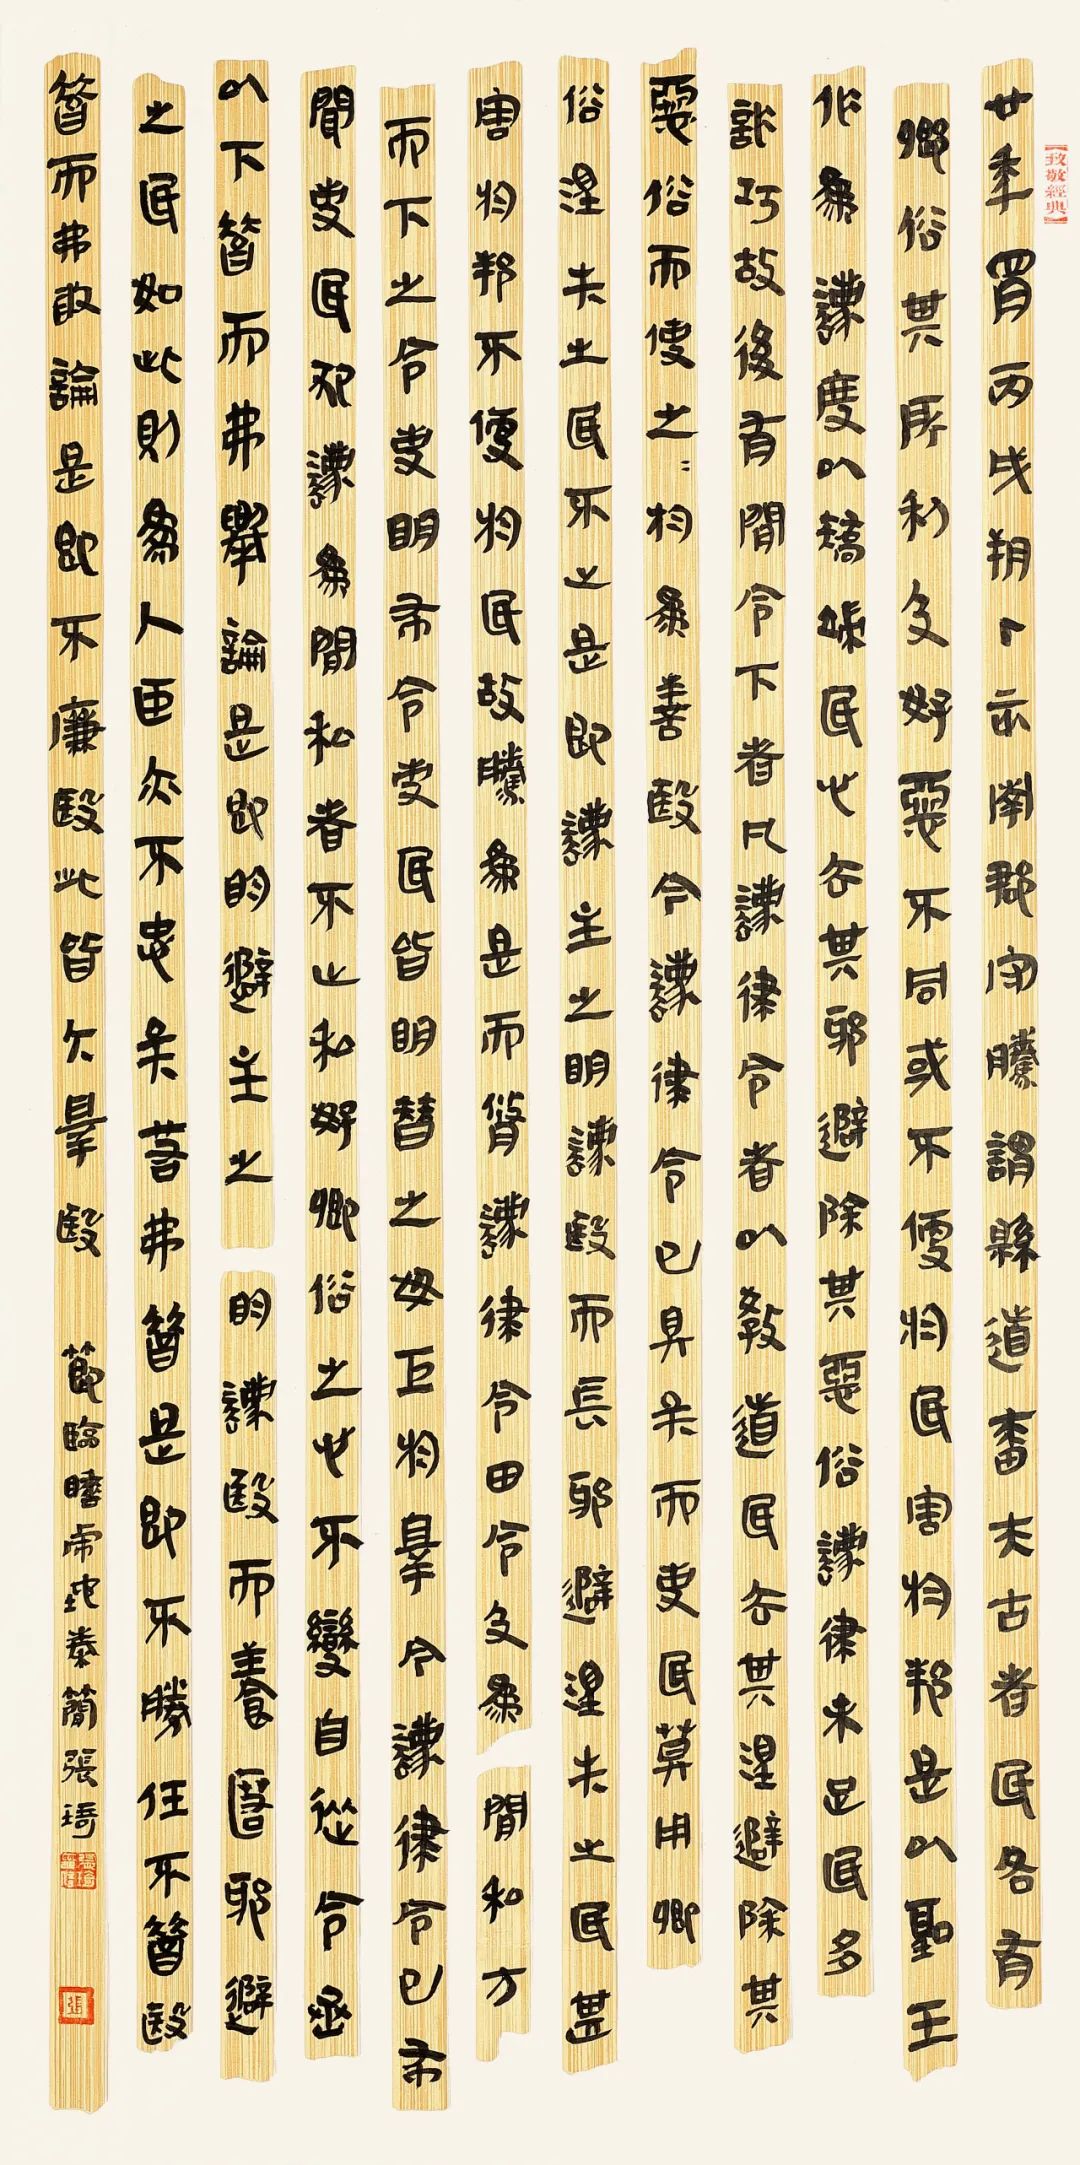 【致敬經典】
廿年四月丙戌朔丁亥南郡守騰謂縣道嗇夫古者民各有
鄉俗其所利及好惡不同或不便於民害於邦是以聖王
作為灋度以矯端民心去其邪避除其惡俗灋律未足民多
詐巧故後有閒令下者凡灋律令者以教道民去其淫避除其
惡俗而使之=於為善殹今灋律令已具矣而吏民莫用鄉
俗淫失之民不止是即灋主之明灋殹而長邪避淫失之民甚
害於邦不便於民故騰為是而脩灋律令田令及為閒私方
而下之令吏明布令吏民皆明智之毋巨於辠今灋律令已布
聞吏民犯灋為閒私者不止私好鄉俗之心不變自從令丞
以下智而弗舉論是即明避主之明灋殹而養匿邪避
之民如此則為人臣亦不忠矣若弗智是即不勝任不智殹
智而弗敢論是即不廉殹此皆大辠殹 節臨睡虎地秦簡張琦